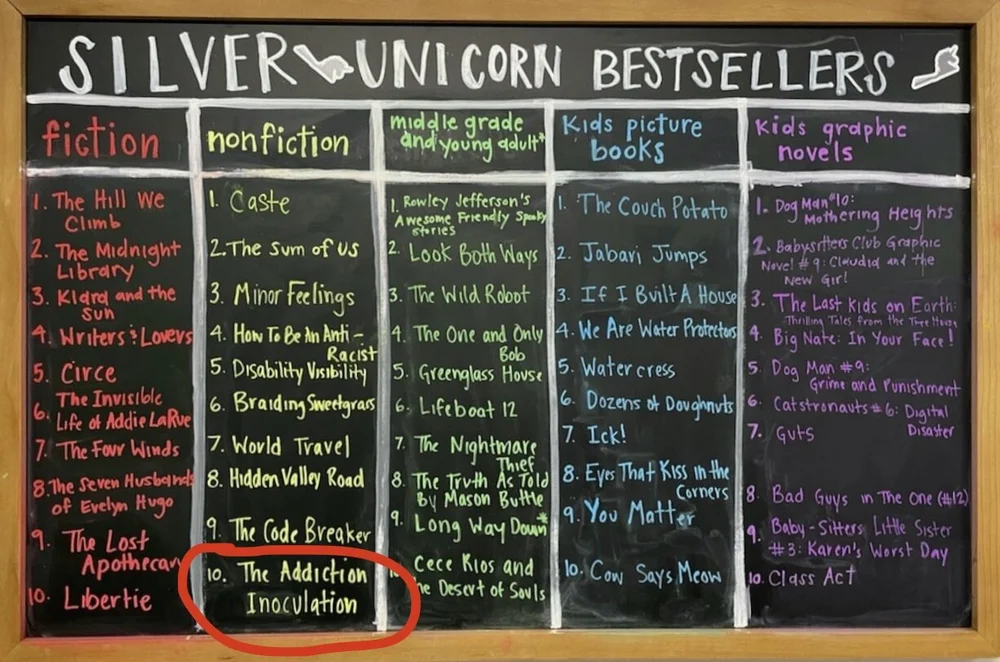 SILVER UNICORN BESTSELLERS
fiction
1. The Hill We
Climb
2. The Midnight
Library
3. Klara and the
Sun
4. Writers & Lovers
5. Circe
6. The Invisible
Life of Addie LaRue
7. The Four Winds
8. The Seven Husbands
of Evelyn Hugo
9. The Lost
Apothecary
10. Libertie
nonfiction
1. Caste
2. The Sum of Us
3. Minor Feelings
4. How To Be An Anti-
Racist
5. Disability Visibility
6. Braiding Sweetgrass
7. World Travel
8. Hidden Valley Road
9. The Code Breaker
10. The Addiction
Inoculation
middle grade
and young adult*
1. Rowley Jefferson's
Awesome Friendly Spooky
stories
2. Look Both Ways
3. The Wild Robot
4. The One and Only
Bob
5. Greenglass House
6. Lifeboat 12
7. The Nightmare
Thief
8. The Truth As Told
By Mason Buttle
9. Long Way Down*
Cece Rios and
the Desert of Souls
Kids picture
books
1. The Couch Potato
2. Jabari Jumps
3. If I Built A House
4. We Are Water Protectors
5. Watercress
6. Dozens of Doughnuts
7. Ick!
8. Eyes That Kiss in the
Corners
9. You Matter
10. Cow Says Meow
Kids graphic
novels
1. Dog Man #10:
Mothering Heights
2. Babysitters Club Graphic
Novel #9: Claudia and the
New Girl
3. The Last Kids on Earth:
Thrilling Tales from the Tree House
4. Big Nate: In Your Face!
5. Dog Man #9:
Grime and Punishment
6. Catstronauts #6: Digital
Disaster
7. Guts
8. Bad Guys in The One (#12)
9. Baby-Sitters Little Sister
#3: Karen's Worst Day
10. Class Act